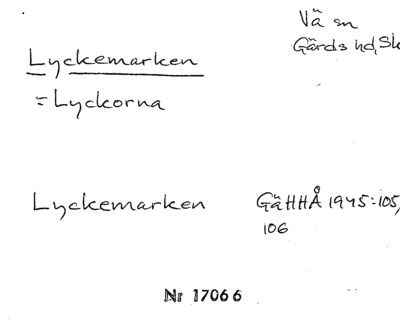 Vä sn
Gärds hd, Sk
Lyckemarken
= Lyckorna
Lyckemarken GäHHÅ 1945:105,
106
Nr 17066